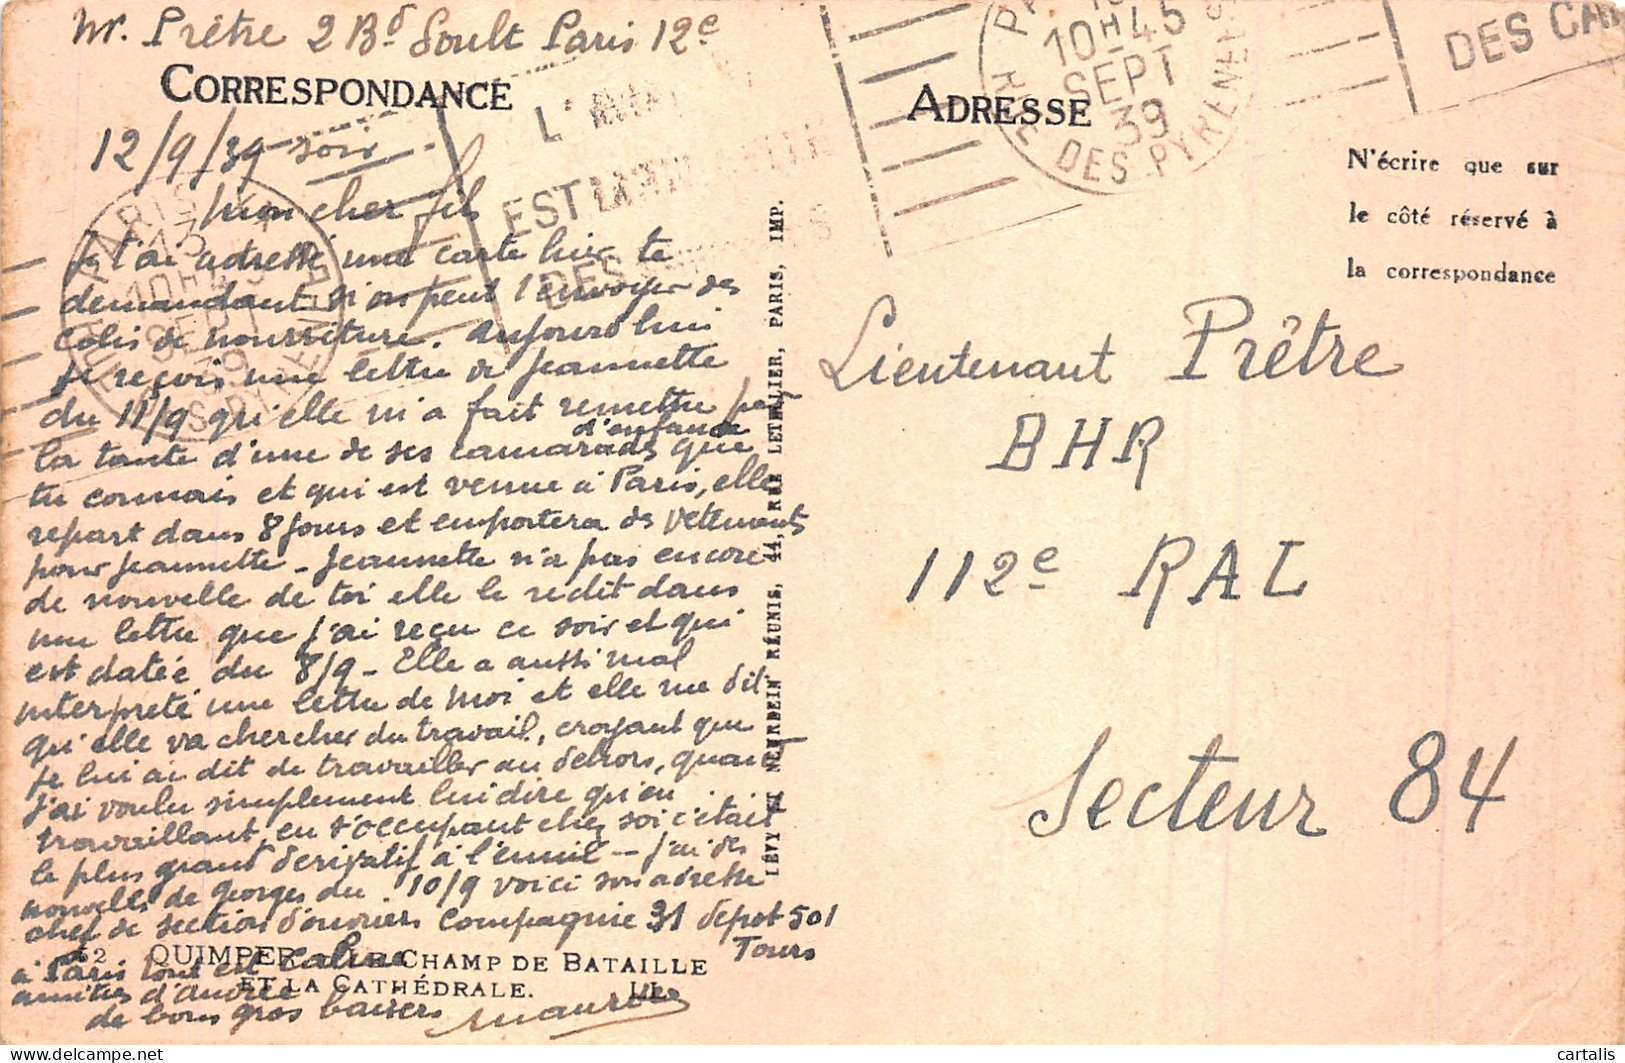 Mr. Prêtre 2 Bd Soult Paris 12e
CORRESPONDANCE
12/9/39 soir
Mon cher fils
Je t'ai adressé une carte hier te
demandant si on peut t'envoyer des
colis de nourriture. Aujourd'hui
je reçois une lettre de Jeannette
du 11/9 qu'elle m'a fait remettre par
la tante d'une de ses camarades d'enfance que
tu connais et qui est venue à Paris, elle
repart dans 8 jours et emportera des vêtements
pour Jeannette - Jeannette n'a pas encore
de nouvelle de toi elle le redit dans
une lettre que j'ai reçu ce soir et qui
est datée du 8/9 - Elle a aussi mal
interpreté une lettre de moi et elle me dit
qu'elle va chercher du travail, croyant que
je lui ai dit de travailler au dehors, quand
j'ai voulu simplement lui dire qu'en
travaillant, en s'occupant chez soi c'était
le plus grand dérivatif à l'ennui - j'ai des
nouvelles de Georges du 10/9 voici son adresse
chef de section d'ouvriers Compagnie 31 depot 501
Tours
à Paris tout est calme
amitiés d'Andrée
de bons gros baisers Maurice
52 QUIMPER. - LE CHAMP DE BATAILLE
ET LA CATHÉDRALE. LL.
LÉVY ET NEURDEIN RÉUNIS, 44, RUE LETELLIER, PARIS, IMP.
PARIS
13
10H45
SEPT
39
RUE DES PYRENEES
L'
EST
DES
ADRESSE
10H45
SEPT
39
RUE DES PYRENEES
DES CA
N'écrire que sur
le côté réservé à
la correspondance
Lieutenant Prêtre
BHR
112e RAL
Secteur 84
cartalis